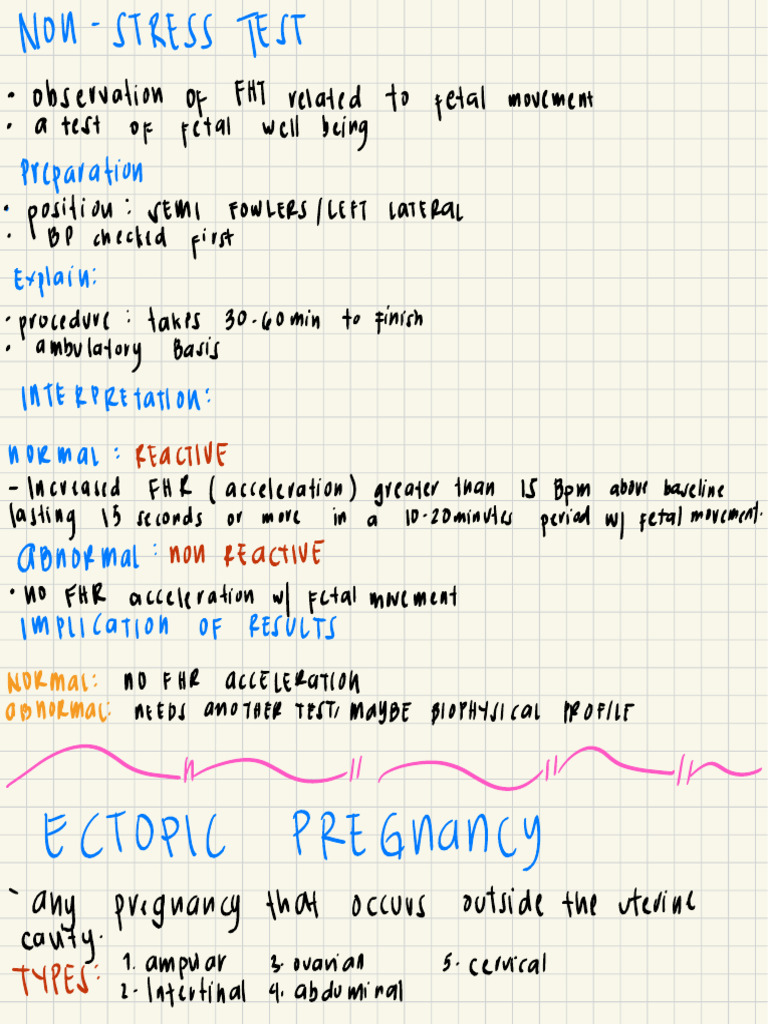 NON-STRESS TEST
• observation of FHT related to fetal movement
• a test of fetal well being
Preparation
• position: SEMI FOWLERS/LEFT LATERAL
• BP checked first
Explain:
• procedure: takes 30-60min to finish
• ambulatory Basis
INTERPRETATION:
NORMAL: REACTIVE
- Increased FHR (acceleration) greater than 15 Bpm above baseline
lasting 15 seconds or more in a 10-20minutes period w/ fetal movement.
ABNORMAL: NON REACTIVE
• NO FHR acceleration w/ fetal movement
IMPLICATION OF RESULTS
NORMAL: NO FHR ACCELERATION
ABNORMAL: NEEDS ANOTHER TEST, MAYBE BIOPHYSICAL PROFILE
ECTOPIC PREGNANCY
- any pregnancy that occurs outside the uterine
cavity.
TYPES: 1. ampular 3. ovarian 5. cervical
2. Intertinal 4. abdominal